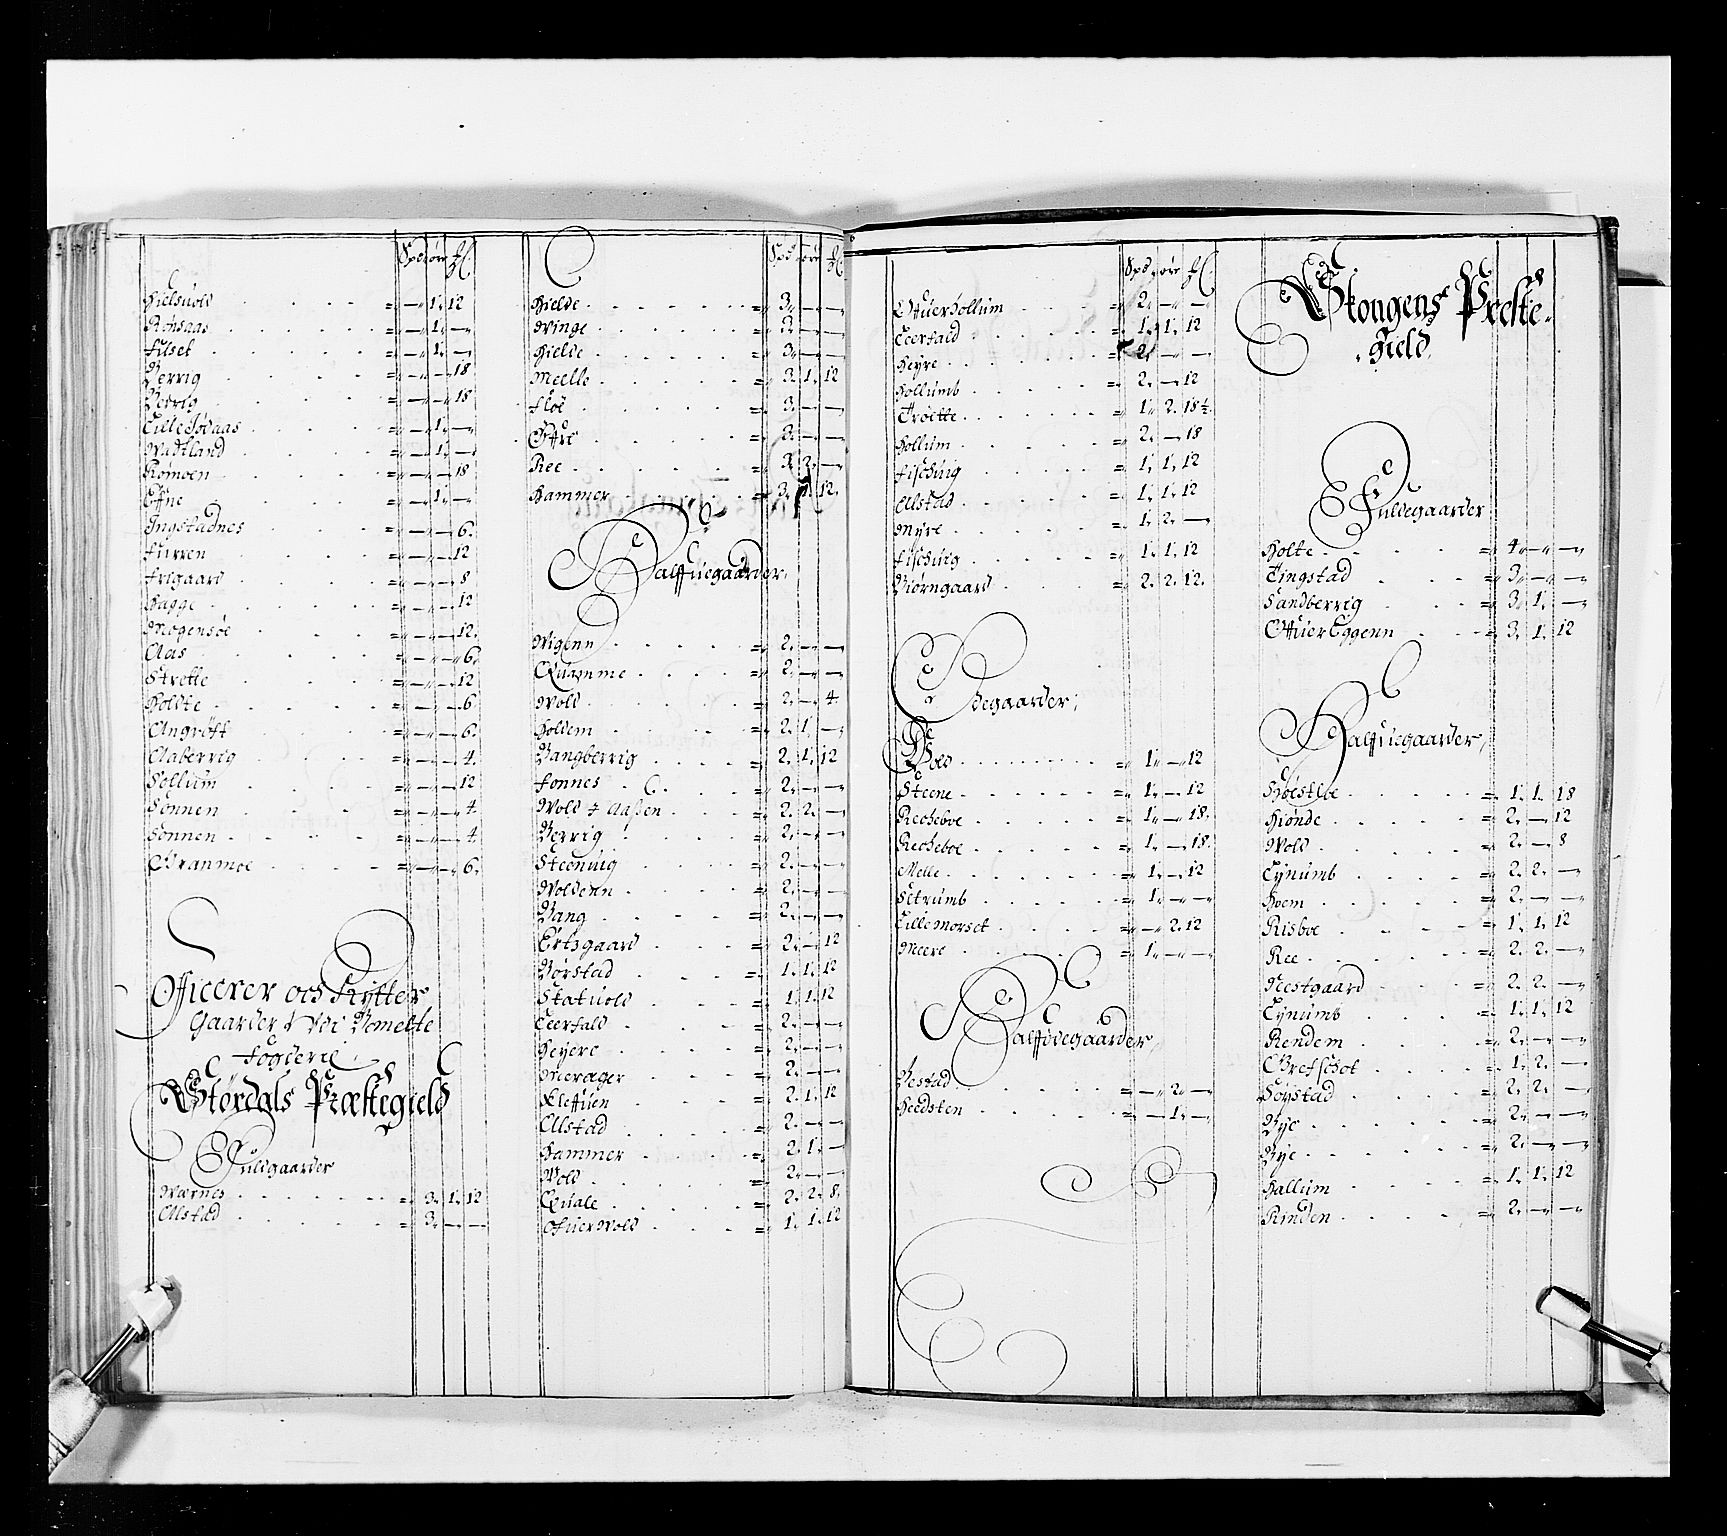 Spd ører ℔.
Hielsuold = — „ 1. 12
Rønsaas = — „ 1. —
Filset = — „ 1. —
Berrig = — „ — 18
Bedrig = — „ — 18
Lillefødaas = — „ 1. —
Wadtland = — „ 1. —
Rømoen = — „ — 18
Effne = — „ 1. —
Ingstadnes = — „ — 6.
Furren = — „ — 12
Frigaard = — „ — 8
Hagge = — „ — 12
Mogensøe = — „ — 12.
Aas = — „ — 6.
Strette = — „ — 12
Holdte = — „ — 6.
Angrøfft = — „ — 6.
Aaberrig = — „ — 4.
Sollum = — „ — 12
Sønnen = — „ — 4
Sønnen = — „ — 4
Obranmoe = — „ — 6.
Officerer och Rytter
Gaarder J Vdi Bemelte
Fogderie
Størdals Præstegield
Fuldgaarder
Wærnes = 3. 1. 12
Alstad = 3. — —
Spd ører ℔.
Hielde = 3. — —
Winge = 3. — —
Hielde = 3. — —
Meelle = 3. 1. 12
Floe = 3. — —
Offue = 3. — —
Ree = 3. 2. —
Hammer = 3. 1. 12.
Halffuegaarder.
Wigenn = 2. — —
Quamme = 2. — —
Wold = 2. — 4
Holdem = 2. 1. —
Bangberrig = 2. 1. 12
Fonnes = 2. — —
Wold & Aassen = 2. 2. —
Berrig = 2. — —
Steening = 2. — —
Woldenn = 2. — —
Bang = 2. — —
Ertzgaard = 2. — 12
Børstad = 1. 1. 12
Statuold = 1. 1. 12
Leerfald = 2. — —
Heyere = 2. — —
Meræger = 2. — —
Kleffuen = 2. 1. 12
Alstad = 2. — —
Hammer = 2. 1. —
Wold = 2. — —
Quale = 2. 2. 8.
OfuerWold = 1. 1. 12
Spd ører ℔.
Offuerhollum = 2. — —
Leerfald = 1. 1. 12
Heyre = 2. — —
Hollumb = 2. — 12
Trøette = 1. 2. 18½.
Hollum = 2. — 18
Fischuig = 1. 1. 12
Alstad = 1. 1. 12
Myre = 1. 2. —
Fischuig = 1. 1. 12
Biørngaard = 2. 2. 12.
Ødegaarder.
Hoed = 1. — 12
Steene = 1. — 12
Recheboe = 1. — 18.
Recheboe = 1. — 18.
Melle = 1. — 12
Scerumb = 1. — —
Lillemorset = — „ 2. 12
Meere = 1. — —
Halffødegaarder.
Bestad = — „ 2. —
Heedsten = — 1. —
Skongens Preste-
Gield.
Fuldegaarder
Holte = 4. — —
Tingstad = 3. — —
Sandberrig = 3. 1. —
OffuerEggenn = 3. 1. 12
Halffuegaarder,
Høestbe = 1. 1. 18
Hionde = 2. — 12
Wold = 2. — 8
Lynumb = 2. 2. —
Hoem = 2. — —
Risboe = 1. 1. 12
Ree = 2. 2. —
Nestgaard = 2. 2. —
Lynumb = 1. 1. 12
Rendem = 2. — —
Gretschot = 1. 2. —
Soystad = 2. 2. —
Bye = 2. — —
Bye = 2. — —
Hallum = 1. 1. 12
Rinden = 2. — —